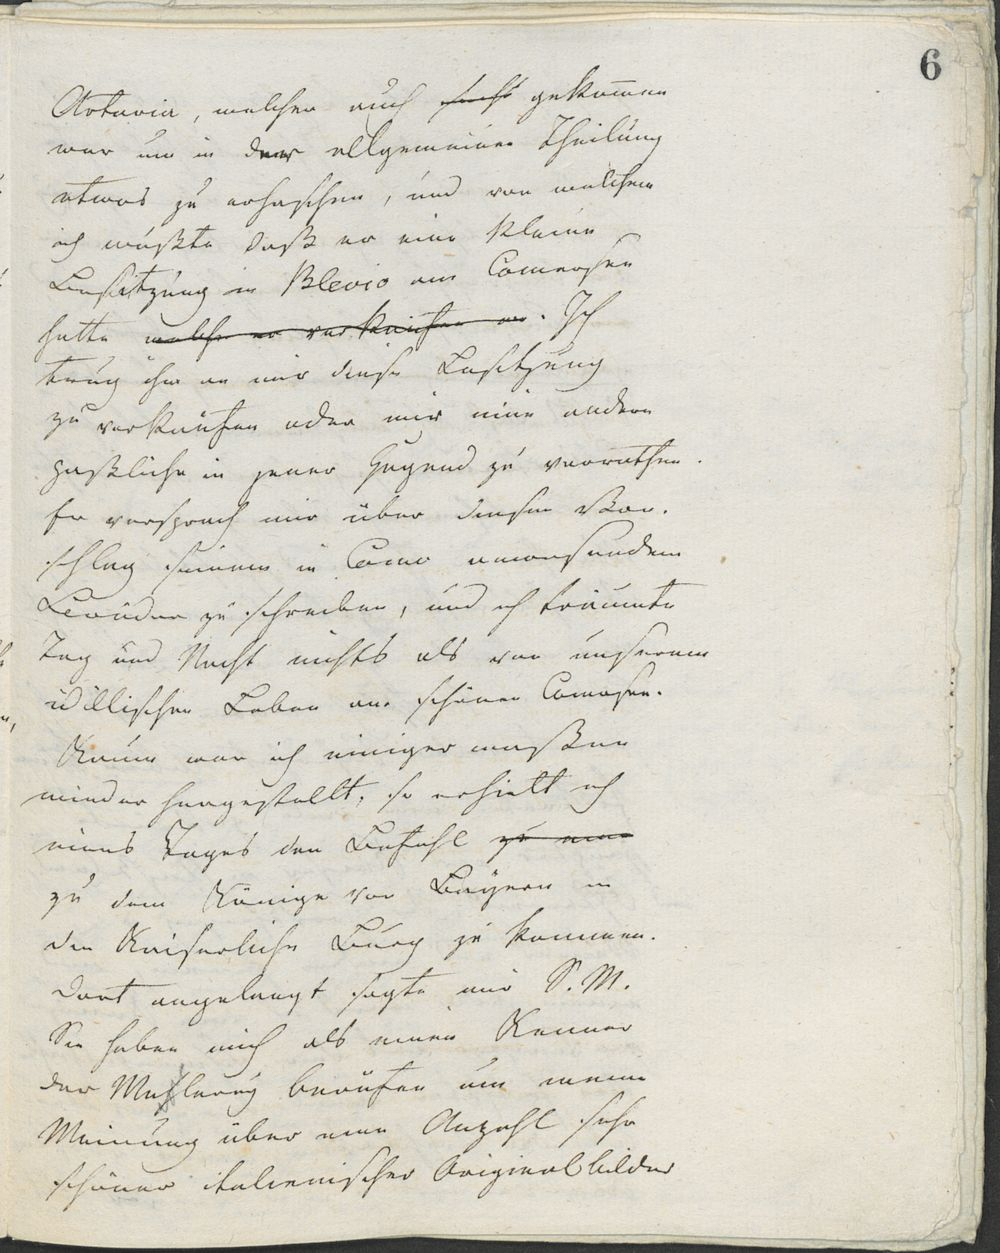 6
Artaria, welcher auch gekom̅en
war um in der allgemeinen Theilung
etwas zu erhaschen, und von welchem
ich wußte daß er eine kleine
Besitzung in Blevio am Comersee
hatte welche er verkaufen. Ich
trug ihm an mir diese Besitzung
zu verkaufen oder mir eine andere
paßliche in jener Gegend zu verrathen.
Er versprach mir über diesen Vor-
schlag seinem in Como anwesenden
Bruder zu schreiben, und ich träumte
Tag und Nacht nichts als von unserem
idillischen Leben am schönen Comosee.
Kaum war ich einiger maßen
wieder hergestellt, so erhielt ich
eines Tages den Befehl zu
zu dem Könige von Bayern in
die Kaiserliche Burg zu kommen.
Dort angelangt sagte mir S. M.
Sie haben mich als einen Kenner
der Mahlerey berufen um meine
Meinung über eine Anzahl sehr
schöner italienischer Originalbilder